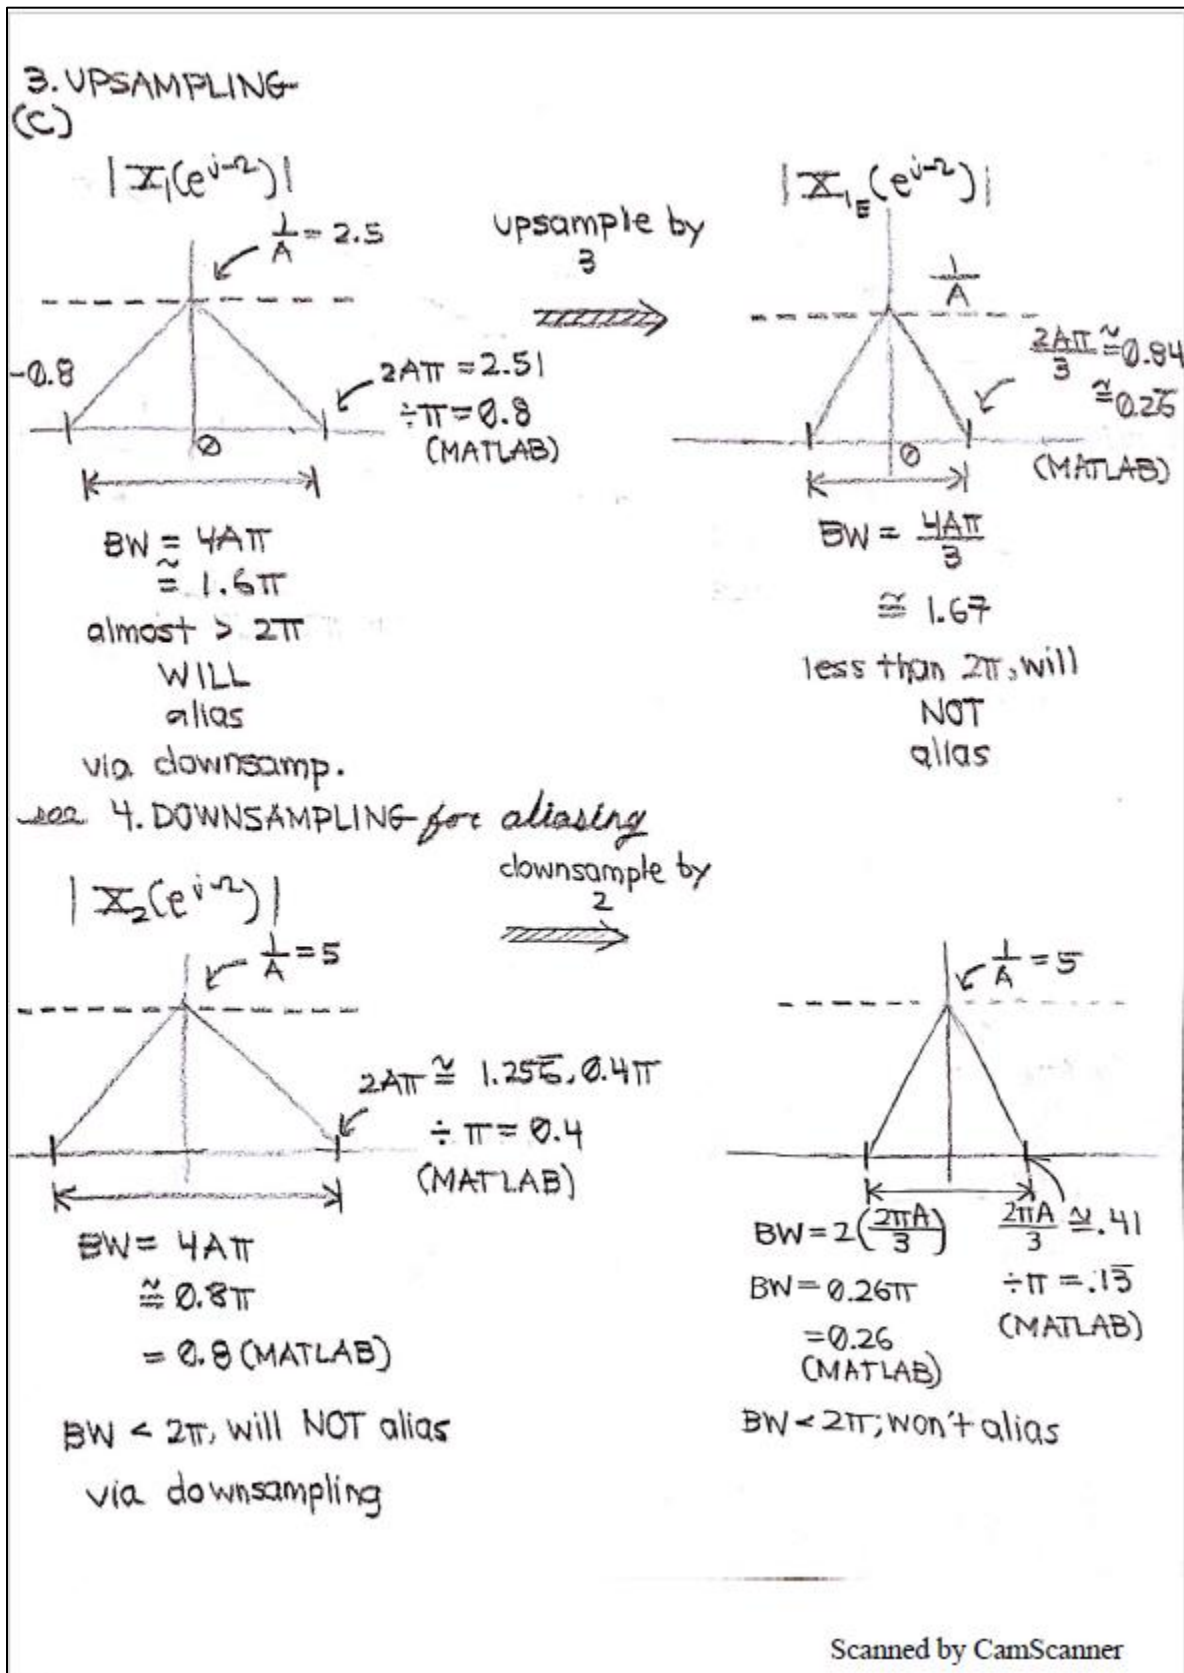 3. UPSAMPLING
(C)
|X₁(e^jΩ)|
1/A = 2.5
-0.8
2Aπ = 2.51
÷π = 0.8
(MATLAB)
0
BW = 4Aπ
≅ 1.6π
almost > 2π
WILL
alias
via downsamp.
upsample by
3
|X₁E(e^jΩ)|
1/A
2Aπ/3 ≅ 0.84
≅ 0.26
(MATLAB)
0
BW = 4Aπ/3
≅ 1.67
less than 2π, will
NOT
alias
see 4. DOWNSAMPLING for aliasing
|X₂(e^jΩ)|
1/A = 5
2Aπ ≅ 1.256, 0.4π
÷ π = 0.4
(MATLAB)
BW = 4Aπ
≅ 0.8π
= 0.8 (MATLAB)
BW < 2π, will NOT alias
via downsampling
downsample by
2
1/A = 5
2πA/3 ≅ .41
÷π = .13
(MATLAB)
BW = 2(2πA/3)
BW = 0.26π
= 0.26
(MATLAB)
BW < 2π; won't alias
Scanned by CamScanner